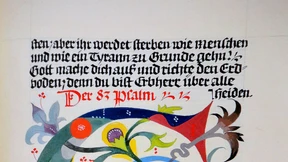 sten, aber ihr werdet sterben wie Menschen
und wie ein Tyrann zu Grunde gehn!
Gott mache dich auf und richte den Erd-
boden; denn du bist Erbherr über alle
Heiden.
Der 83 Psalm.